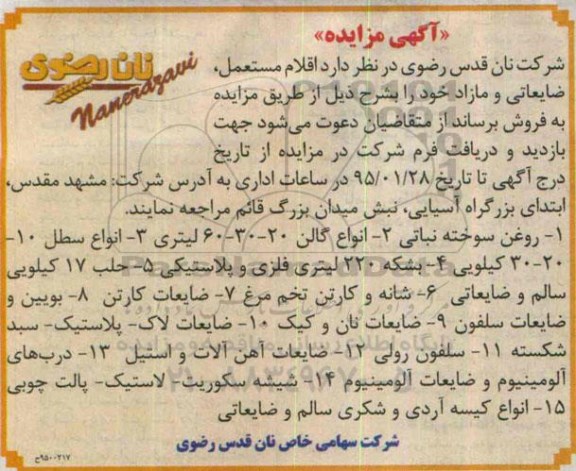 «آگهی مزایده»
نان رضوی
Nanerazavi
شرکت نان قدس رضوی در نظر دارد اقلام مستعمل،
ضایعاتی و مازاد خود را بشرح ذیل از طریق مزایده
به فروش برساند از متقاضیان دعوت می‌شود جهت
بازدید و دریافت فرم شرکت در مزایده از تاریخ
درج آگهی تا تاریخ ۹۵/۰۱/۲۸ در ساعات اداری به آدرس شرکت: مشهد مقدس،
ابتدای بزرگراه آسیایی، نبش میدان بزرگ قائم مراجعه نمایند.
۱- روغن سوخته نباتی ۲- انواع گالن ۲۰-۳۰-۶۰ لیتری ۳- انواع سطل ۱۰-
۲۰-۳۰ کیلویی ۴- بشکه ۲۲۰ لیتری فلزی و پلاستیکی ۵- حلب ۱۷ کیلویی
سالم و ضایعاتی ۶- شانه و کارتن تخم مرغ ۷- ضایعات کارتن ۸- بوبین و
ضایعات سلفون ۹- ضایعات نان و کیک ۱۰- ضایعات لاک- پلاستیک- سبد
شکسته ۱۱- سلفون رولی ۱۲- ضایعات آهن آلات و استیل ۱۳- درب‌های
آلومینیوم و ضایعات آلومینیوم ۱۴- شیشه سکوریت- لاستیک- پالت چوبی
۱۵- انواع کیسه آردی و شکری سالم و ضایعاتی
شرکت سهامی خاص نان قدس رضوی
۹۵۰۰۲۱۷ح